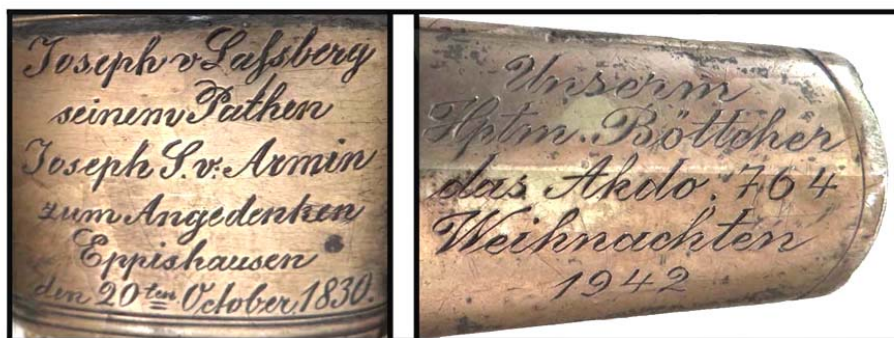 Joseph v Laſsberg
seinem Pathen
Joseph S. v. Armin
zum Angedenken
Eppishausen
den 20ten October, 1830.
Unserm
Hptm. Böttcher
das Akdo. 764
Weihnachten
1942